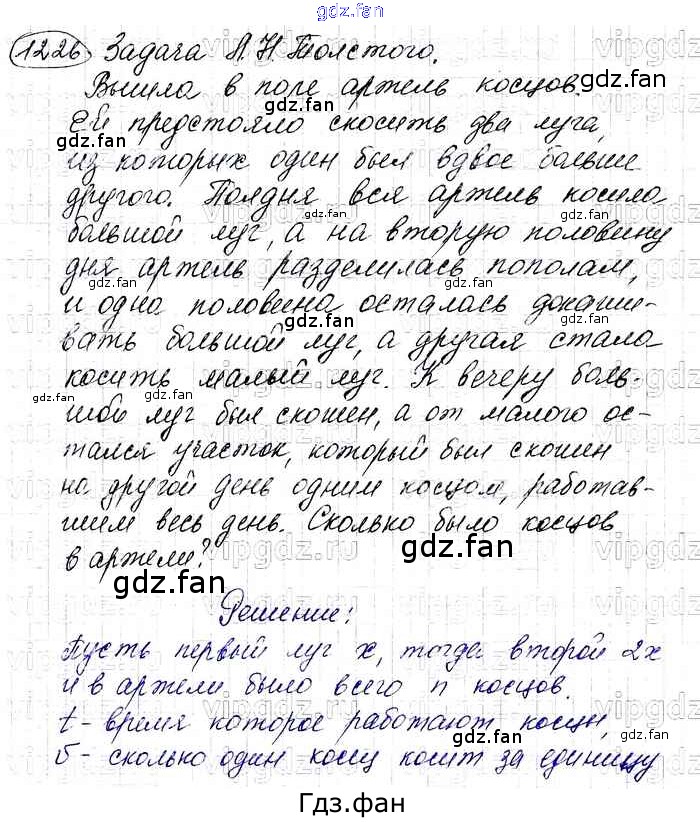 gdz.fan
1226. Задача Л.Н.Толстого.
Вышла в поле артель косцов.
Ей предстояло скосить два луга,
из которых один был вдвое больше
другого. Полдня вся артель косила
большой луг, а на вторую половину
дня артель разделилась пополам,
и одна половина осталась докаши-
вать большой луг, а другая стала
косить малый луг. К вечеру боль-
шой луг был скошен, а от малого ос-
тался участок, который был скошен
на другой день одним косцом, работав-
шим весь день. Сколько было косцов
в артели?
Решение:
Пусть первый луг x, тогда второй 2x
и в артели было всего n косцов.
t - время которое работают косцы,
б - сколько один косец косит за единицу
Гдз.фан